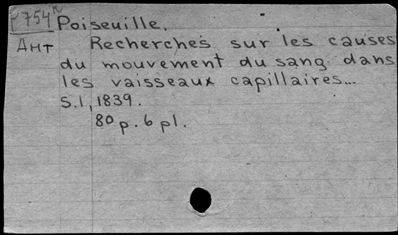 754 Poiseuille.
Ант Recherches sur les causes
du mouvement du sang dans
les vaisseaux capillaires...
S.l, 1839.
80 p. 6 pl.